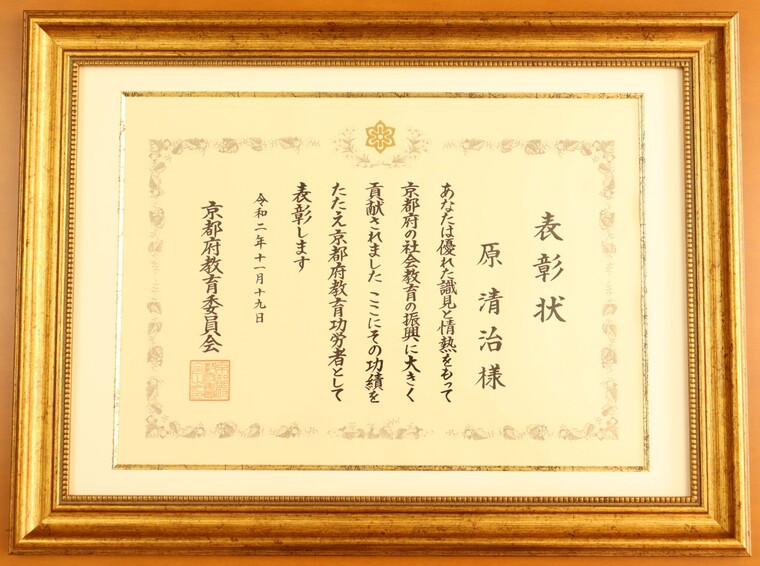 表彰状
原清治様
あなたは優れた識見と情熱をもって
京都府の社会教育の振興に大きく
貢献されました ここにその功績を
たたえ京都府教育功労者として
表彰します
令和二年十一月十九日
京都府教育委員会